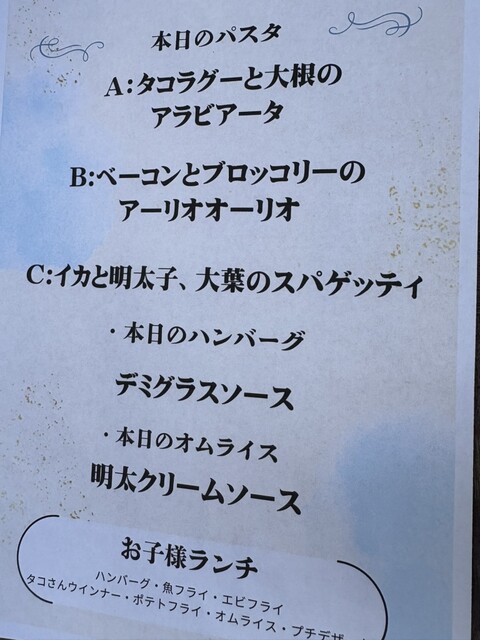 本日のパスタ
A:タコラグーと大根の
アラビアータ
B:ベーコンとブロッコリーの
アーリオオーリオ
C:イカと明太子、大葉のスパゲッティ
・本日のハンバーグ
デミグラスソース
・本日のオムライス
明太クリームソース
お子様ランチ
ハンバーグ・魚フライ・エビフライ
タコさんウインナー・ポテトフライ・オムライス・プチデザ